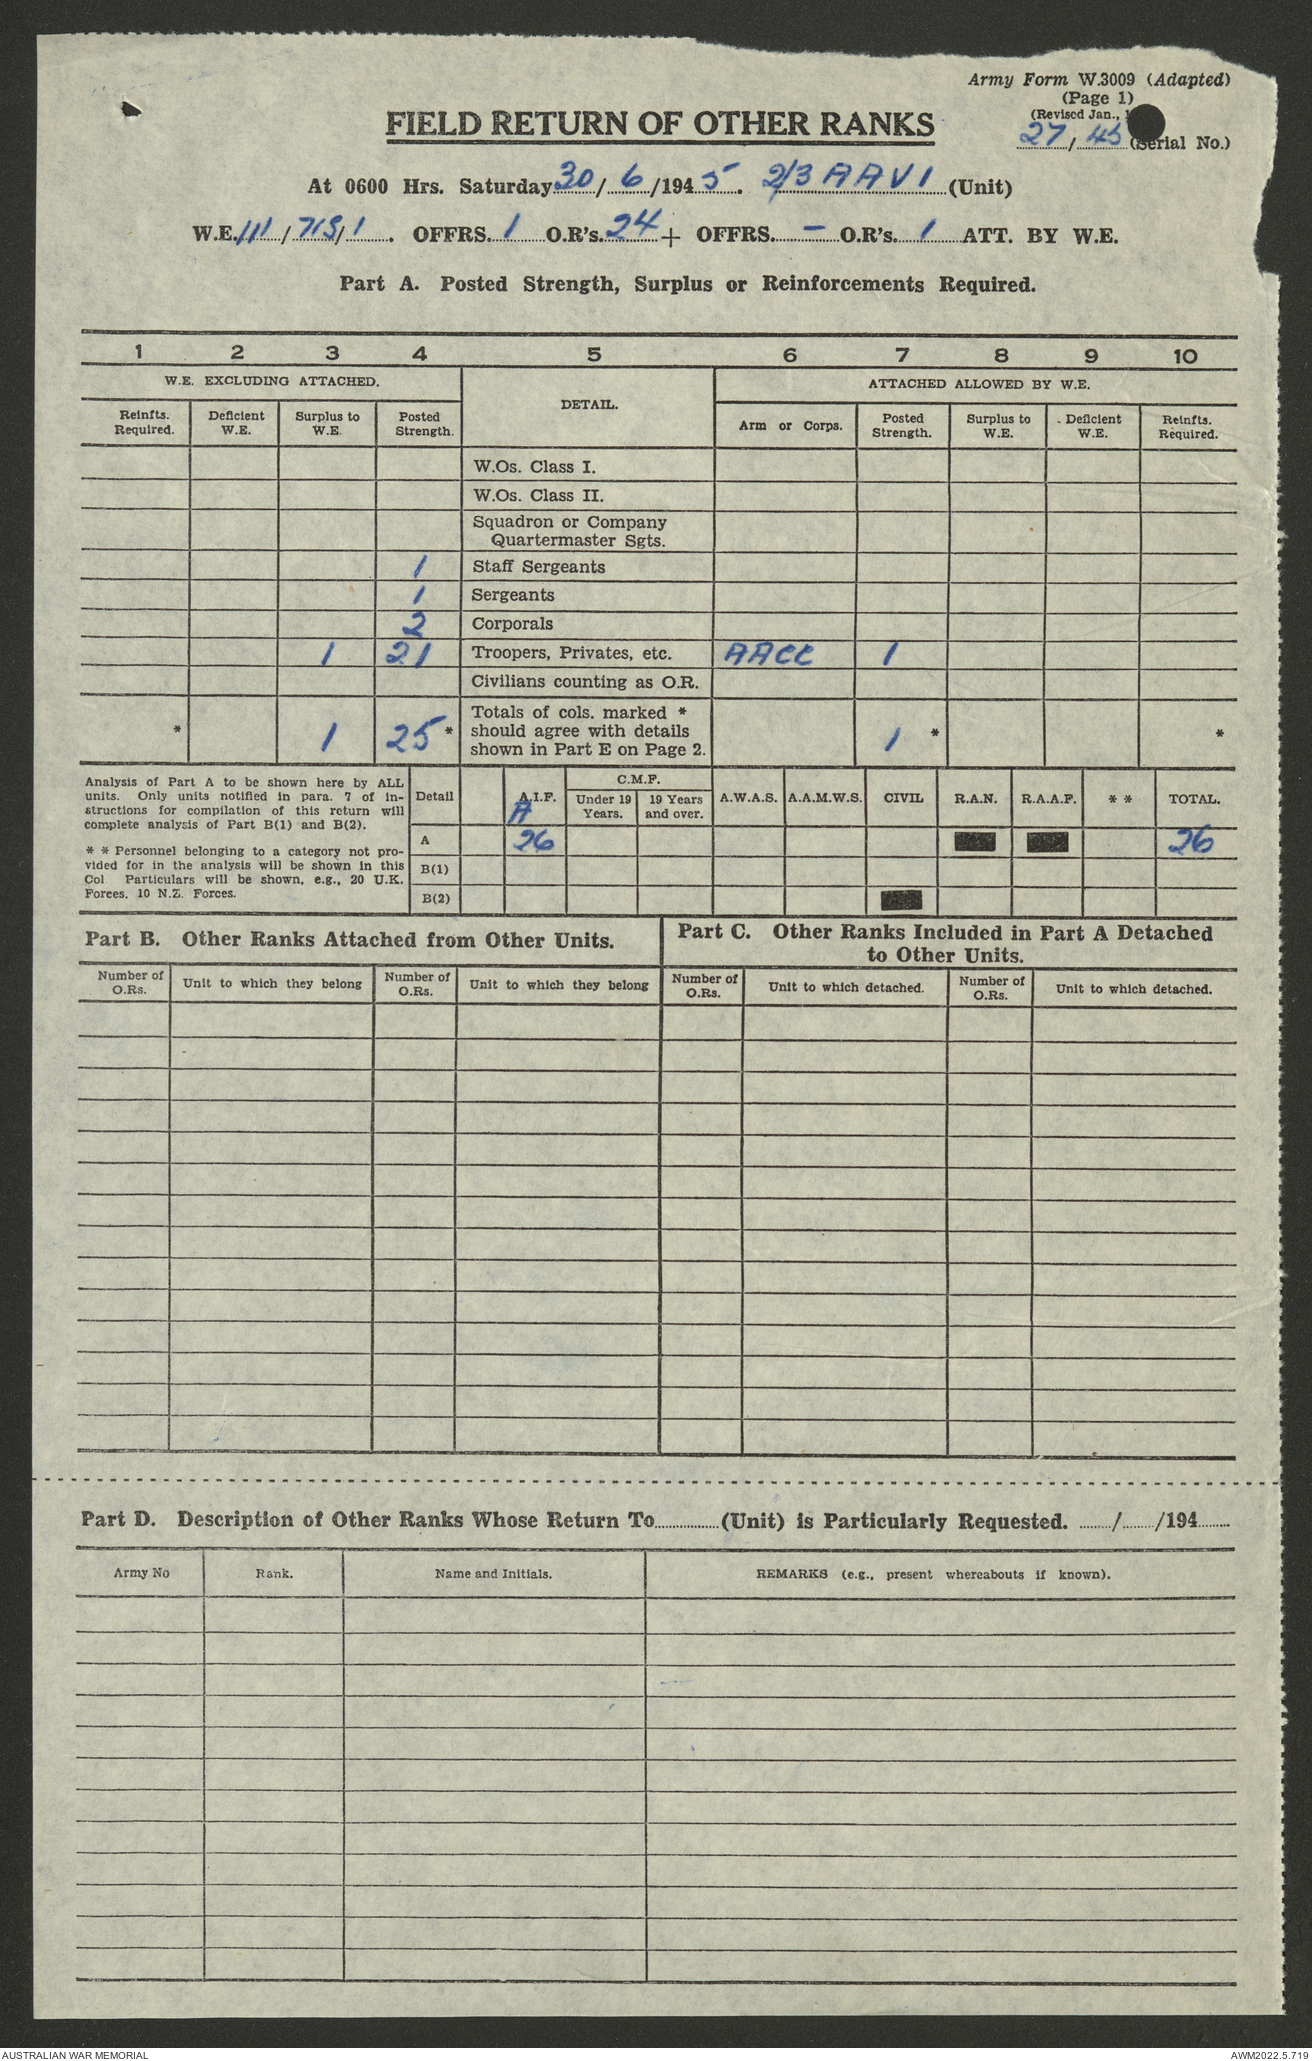 Army Form W.3009 (Adapted)
(Page 1)
(Revised Jan.,
27/45 (Serial No.)
FIELD RETURN OF OTHER RANKS
At 0600 Hrs. Saturday 30/6/1945. 2/3 AAVI (Unit)
W.E. III/715/1. OFFRS. 1 O.R's. 24 + OFFRS. — O.R's. 1 ATT. BY W.E.
Part A. Posted Strength, Surplus or Reinforcements Required.
1 2 3 4 5 6 7 8 9 10
W.E. EXCLUDING ATTACHED. DETAIL. ATTACHED ALLOWED BY W.E.
Reinfts. Required. Deficient W.E. Surplus to W.E. Posted Strength. Arm or Corps. Posted Strength. Surplus to W.E. Deficient W.E. Reinfts. Required.
W.Os. Class I.
W.Os. Class II.
Squadron or Company
Quartermaster Sgts.
1 Staff Sergeants
1 Sergeants
2 Corporals
1 21 Troopers, Privates, etc. AACC 1
Civilians counting as O.R.
Totals of cols. marked *
* 1 25 * should agree with details 1 * *
shown in Part E on Page 2.
Analysis of Part A to be shown here by ALL
units. Only units notified in para. 7 of in-
structions for compilation of this return will
complete analysis of Part B(1) and B(2).
* * Personnel belonging to a category not pro-
vided for in the analysis will be shown in this
Col Particulars will be shown, e.g., 20 U.K.
Forces, 10 N.Z. Forces.
C.M.F.
Detail A.I.F. Under 19 Years. 19 Years and over. A.W.A.S. A.A.M.W.S. CIVIL R.A.N. R.A.A.F. * * TOTAL.
A
A 26 26
B(1)
B(2)
Part B. Other Ranks Attached from Other Units.
Part C. Other Ranks Included in Part A Detached
to Other Units.
Number of O.Rs. Unit to which they belong Number of O.Rs. Unit to which they belong Number of O.Rs. Unit to which detached. Number of O.Rs. Unit to which detached.
Part D. Description of Other Ranks Whose Return To............(Unit) is Particularly Requested. ....../....../194......
Army No Rank. Name and Initials. REMARKS (e.g., present whereabouts if known).
AUSTRALIAN WAR MEMORIAL AWM2022.5.719